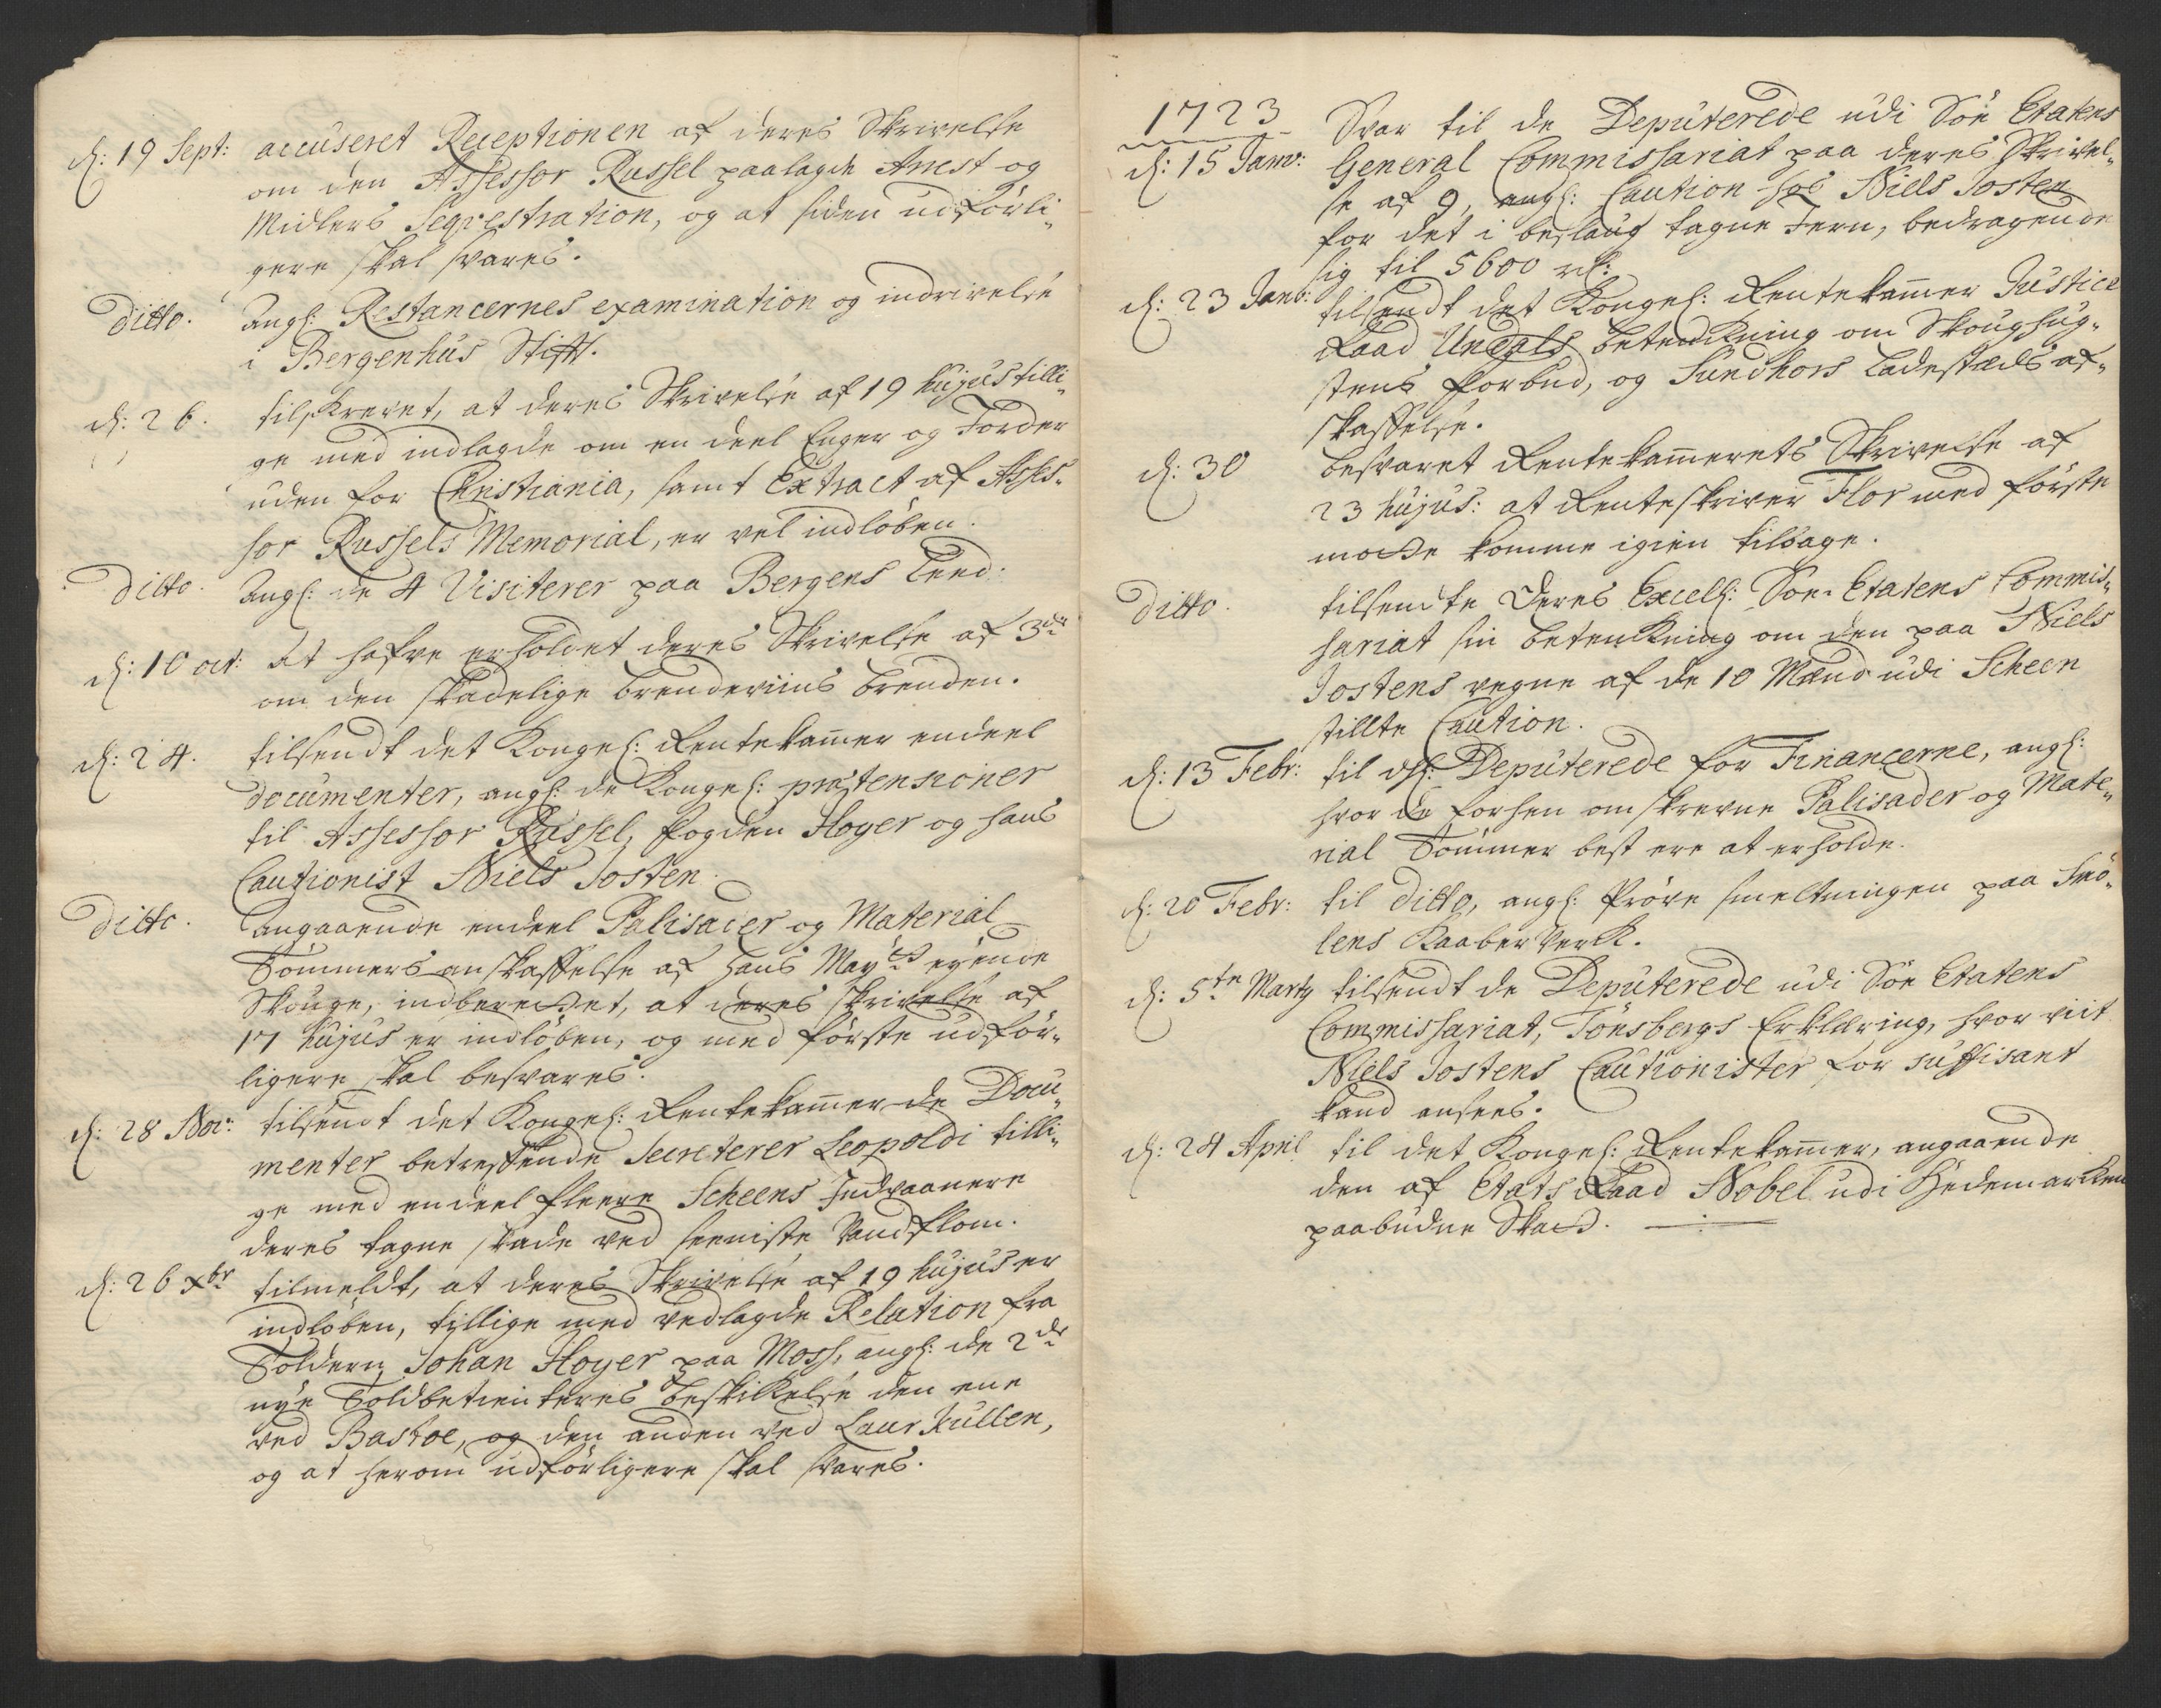 d: 19 Sept: accuseret Receptionen af deres Skrivelse
om den Assessor Russel paalagde Arrest og
Midlers Seqvestration, og at siden udförli-
gere skal svares.
ditto. Ang: Restancernes examination og indrivelse
i Bergenhus Stift.
d: 26. tilskrevet, at deres Skrivelse af 19 hujus tilli-
ge med indlagde om en deel Enger og Jorder
uden for Christiania, samt Extract af Asses-
sor Russels Memorial, er vel indlöben.
ditto. Ang: de 4 Visiterer paa Bergens Leed.
d: 10 oct: At hafve erholdet deres Skrivelse af 3de
om den skadelige brendeviins brenden.
d: 24. tilsendt det Kongel: Rentekammer endeel
documenter, ang: de Kongel: prætensioner
til Assessor Russel, fogden Hoyer og hans
Cautionist Niels Josten.
ditto. Angaaende endeel Palisader og Material
Tömmers anskaffelse af hans Mayts eyende
Skouge, indberettet, at deres skrivelse af
17 hujus er indlöben, og med förste udför-
ligere skal besvares.
d: 28 Nov: tilsendt det Kongel: Rentekammer de Docu-
menter betreffende Secreterer Leopoldi tilli-
ge med endeel fleere Scheens Indvaanere
deres tagne skade ved seeniste Vandflom.
d: 26 xbr tilmeldt, at deres Skrivelse af 19 hujus er
indlöben, tillige med vedlagde Relation fra
Tolderen Johan Hoyer paa Moss, ang: de 2de
nye Toldbetienteres beskikkelse den ene
ved Bastoe, og den anden ved Laurkullen,
og at herom udförligere skal svares.
1723 Svar til de Deputerede udi Söe Etatens
d: 15 Janv: General Commissariat paa deres Skrivel-
se af 9, ang: Caution hos Niels Josten
for det i beslaug tagne Jern, bedragende
sig til 5600 rd:
d: 23 Janv: tilsendt det Kongel: Rentekammer Justice
Raad Undals betenckning om Skoughug-
stens forbud, og Sundhors Ladesteds af-
skaffelse.
d: 30 besvaret Rentekammerets Skrivelse af
23 hujus: at Renteskriver Flor med förste
motte komme igien tilbage.
ditto. tilsendte Deres Excell: Söe-Etatens Commis-
sariat sin betenckning om den paa Niels
Jostens vegne af de 10 Mænd udi Scheen
stillte Caution.
d: 13 Febr: til de Deputerede for Financerne, ang:
hvor de forhen omskrevne Palisader og Mate-
rial Tömmer best ere at erholde.
d: 20 Febr: til ditto, ang: Pröve smeltningen paa Smö-
lens Kaaber Verk.
d: 5te Marty tilsendt de Deputerede udi Söe Etatens
Commissariat, Tönsbergs Erklæring, hvor viit
Niels Jostens Cautionister for suffisant
kand ansees.
d: 24 April til det Kongel: Rentekammer, angaaende
den af Etats Raad Nobel udi Hedemarcken
paabudne Skatt.